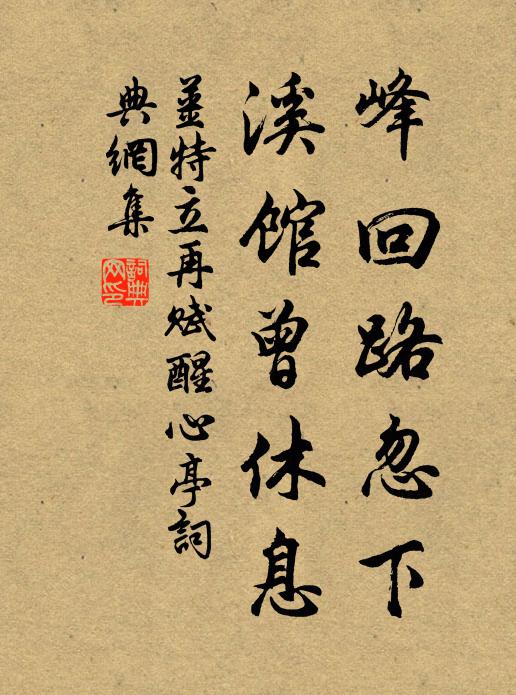 峰回路忽下
溪馆曾休息
薑特立再赋醒心亭詞
典網集
詞典
网印